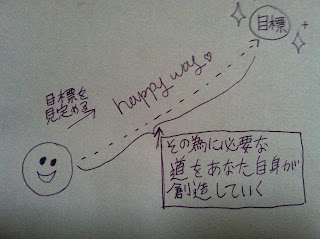 目標
目標を
見定める
happy way♡
その為に必要な
道をあなた自身が
創造していく